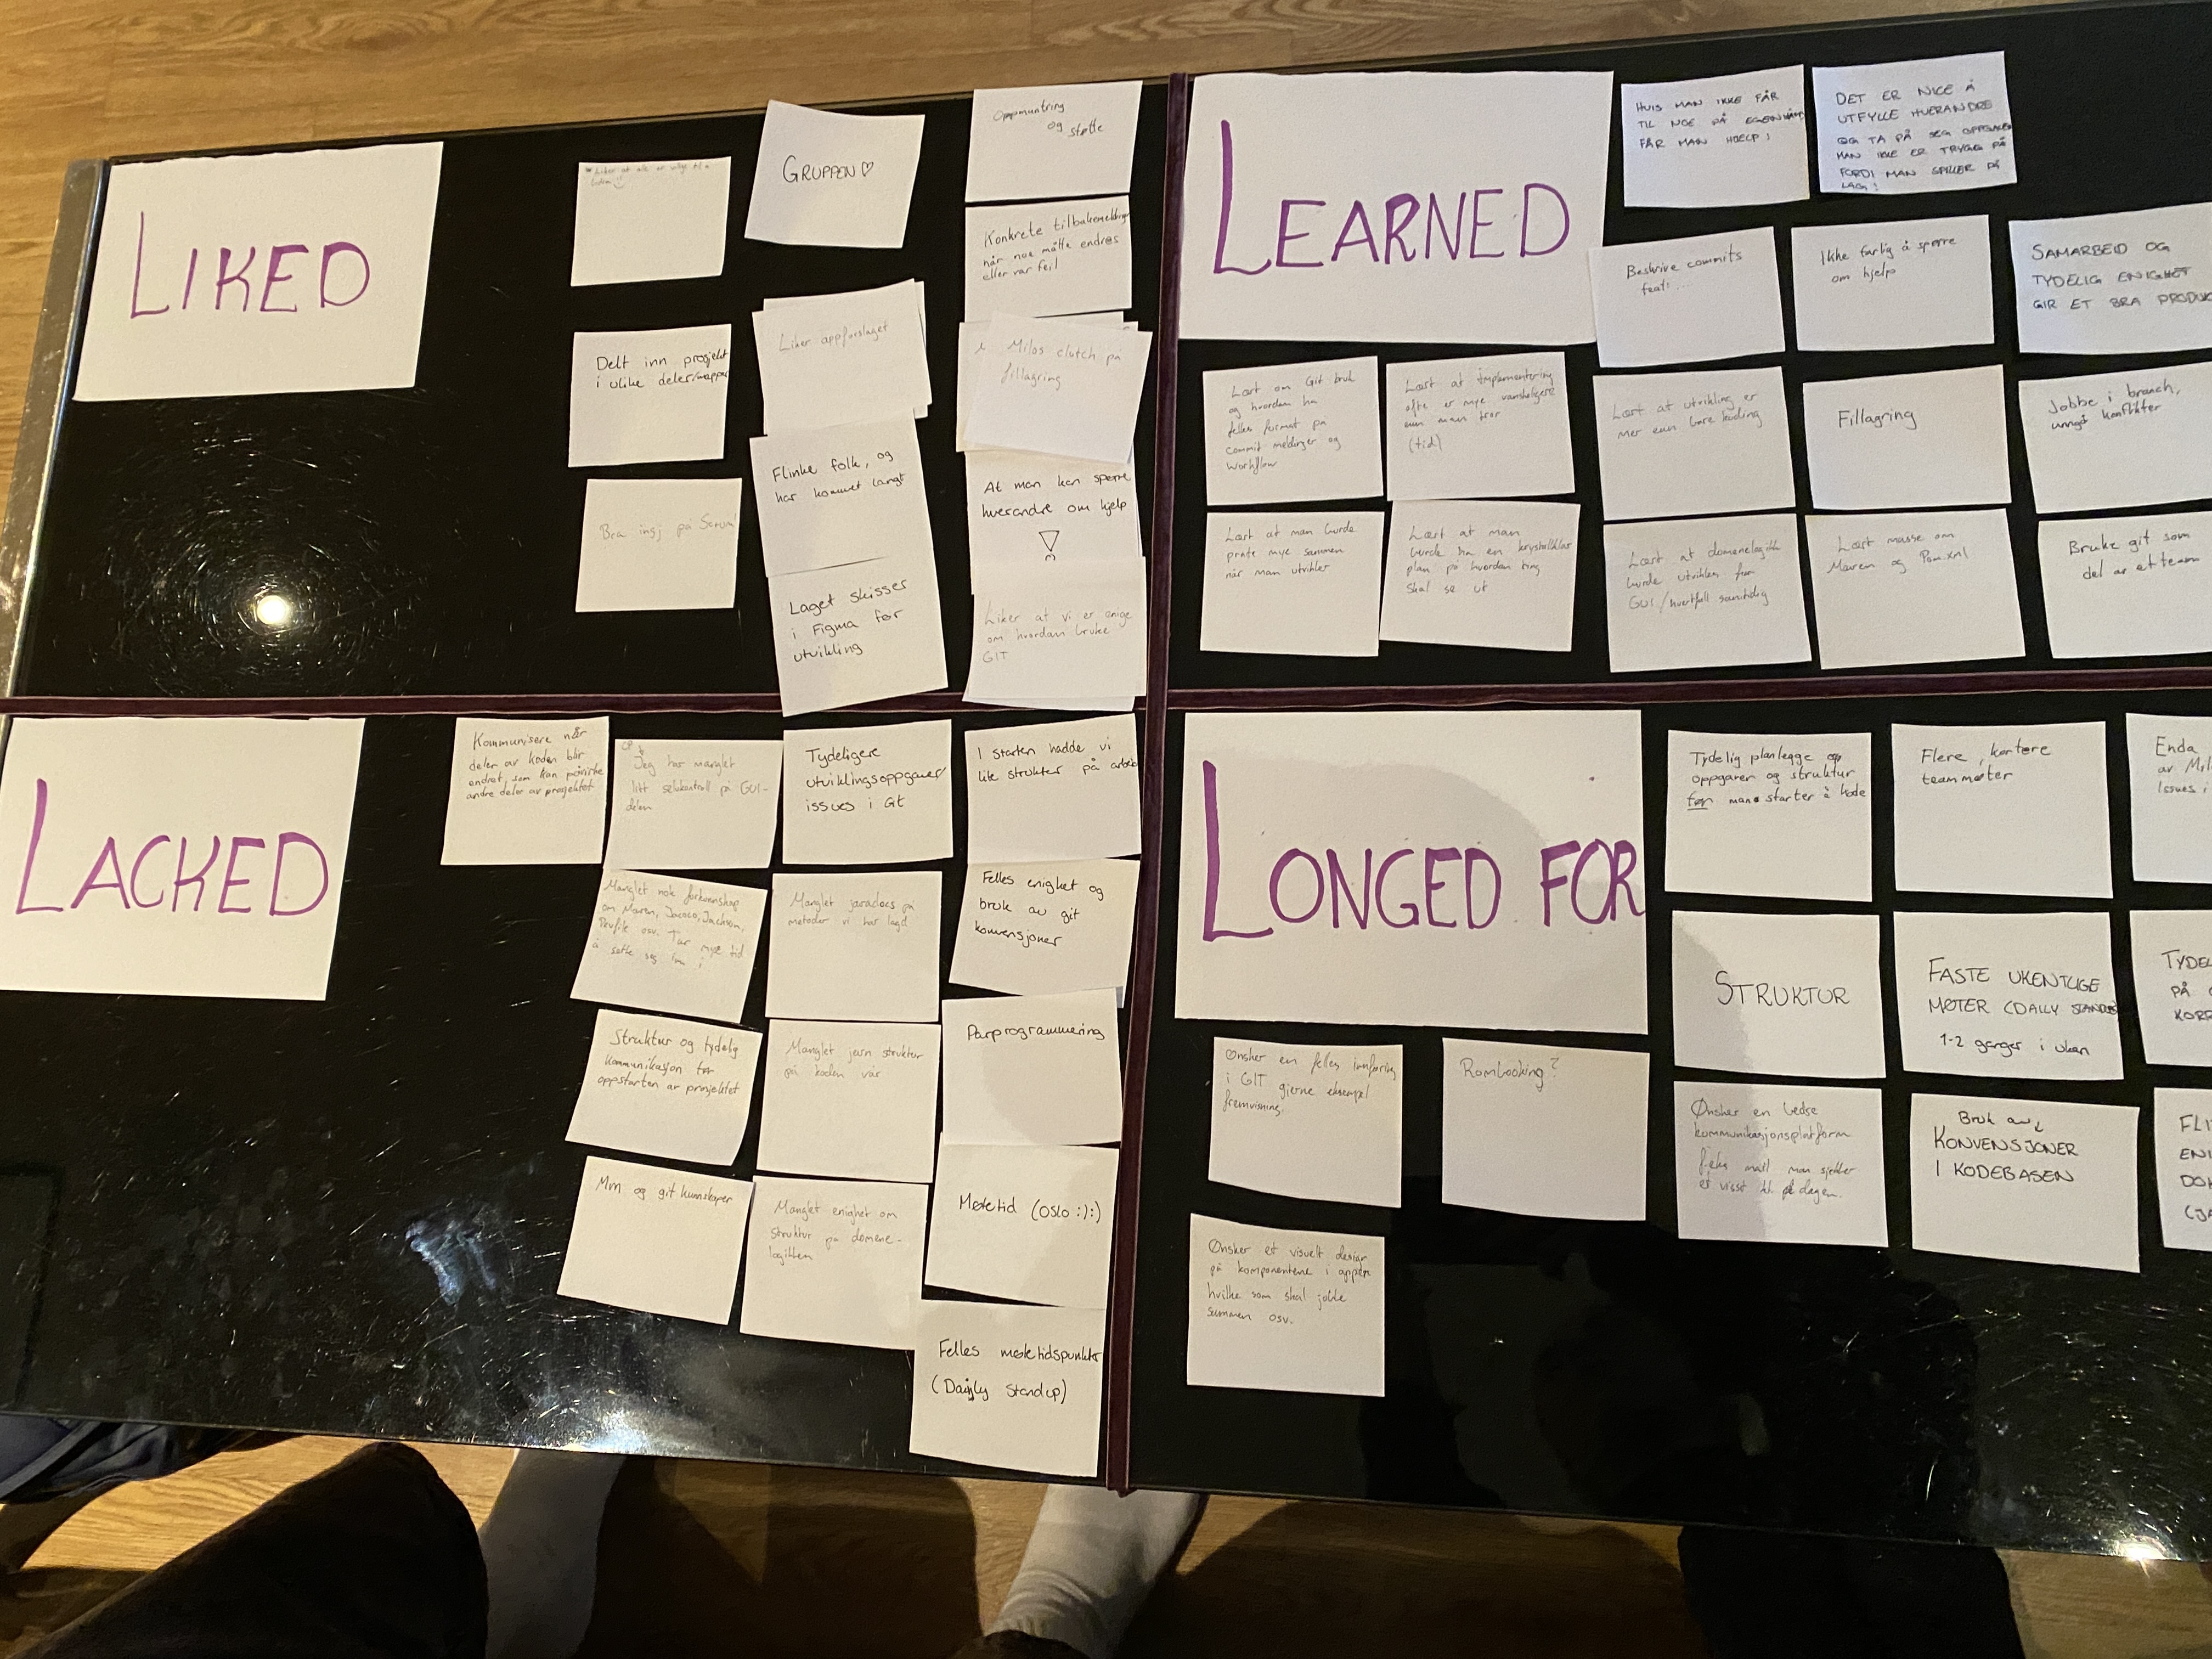 LIKED
Liker at alle er villige til å
bidra
GRUPPEN ♡
Oppmuntring
og støtte
Konkrete tilbakemeldinger
når noe måtte endres
eller var feil
Delt inn prosjekt
i ulike deler/mapper
Liker appforslaget
Milos clutch på
fillagring
Flinke folk, og
har kommet langt
At man kan spørre
hverandre om hjelp
Bra insj på Scrum!
Laget skisser
i Figma før
utvikling
Liker at vi er enige
om hvordan bruke
GIT
LEARNED
HVIS MAN IKKE FÅR
TIL NOE PÅ EGENHÅND
FÅR MAN HJELP!
DET ER NICE Å
UTFYLLE HVERANDRE
OG TA PÅ SEG OPPGAVER
MAN IKKE ER TRYGG PÅ
FORDI MAN SPILLER PÅ
LAG!
Beskrive commits
feat: ...
Ikke farlig å spørre
om hjelp
SAMARBEID OG
TYDELIG ENIGHET
GIR ET BRA PRODUK
Lært om Git bruk
og hvordan ha
felles format på
commit meldinger og
workflow
Lært at implementering
ofte er mye vanskeligere
enn man tror
(tid)
Lært at utvikling er
mer enn bare koding
Fillagring
Jobbe i branch,
unngå konflikter
Lært at man burde
prate mye sammen
når man utvikler
Lært at man
burde ha en krystallklar
plan på hvordan ting
skal se ut
Lært at domenelogikk
burde utvikles før
GUI/hvertfall samtidig
Lært masse om
Maven og Pom.xml
Bruke git som
del av et team
LACKED
Kommunisere når
deler av koden blir
endret, som kan påvirke
andre deler av prosjektet
Jeg har manglet
litt selvkontroll på GUI-
delen
Tydeligere
utviklingsoppgaver/
issues i Git
I starten hadde vi
lite struktur på arbeid
Manglet nok forkunnskap
om Maven, Jacoco, Jackson,
Profile osv. Tar mye tid
å sette seg inn i
Manglet javadocs på
metoder vi har lagd
Felles enighet og
bruk av git
konvensjoner
Struktur og tydelig
kommunikasjon før
oppstarten av prosjektet
Manglet jevn struktur
på koden vår
Parprogrammering
Mvn og git kunnskaper
Manglet enighet om
struktur på domene-
logikken
Møtetid (OSLO :):)
Felles møtetidspunkter
(Daily standup)
LONGED FOR
Tydelig planlegge
oppgaver og struktur
før man starter å kode
Flere, kortere
teammøter
Enda
av Mil
Issues i
STRUKTUR
FASTE UKENTLIGE
MØTER (DAILY STANDUP
1-2 ganger i uken
TYDEL
PÅ
KORR
Ønsker en felles innføring
i GIT gjerne eksempel
fremvisning.
Rombooking?
Ønsker en bedre
kommunikasjonsplatform
f.eks mail man sjekker
et visst kl. på dagen.
Bruk av
KONVENSJONER
I KODEBASEN
FLI
ENI
DOK
(JA
Ønsker et visuelt design
på komponentene i appen
hvilke som skal jobbe
sammen osv.